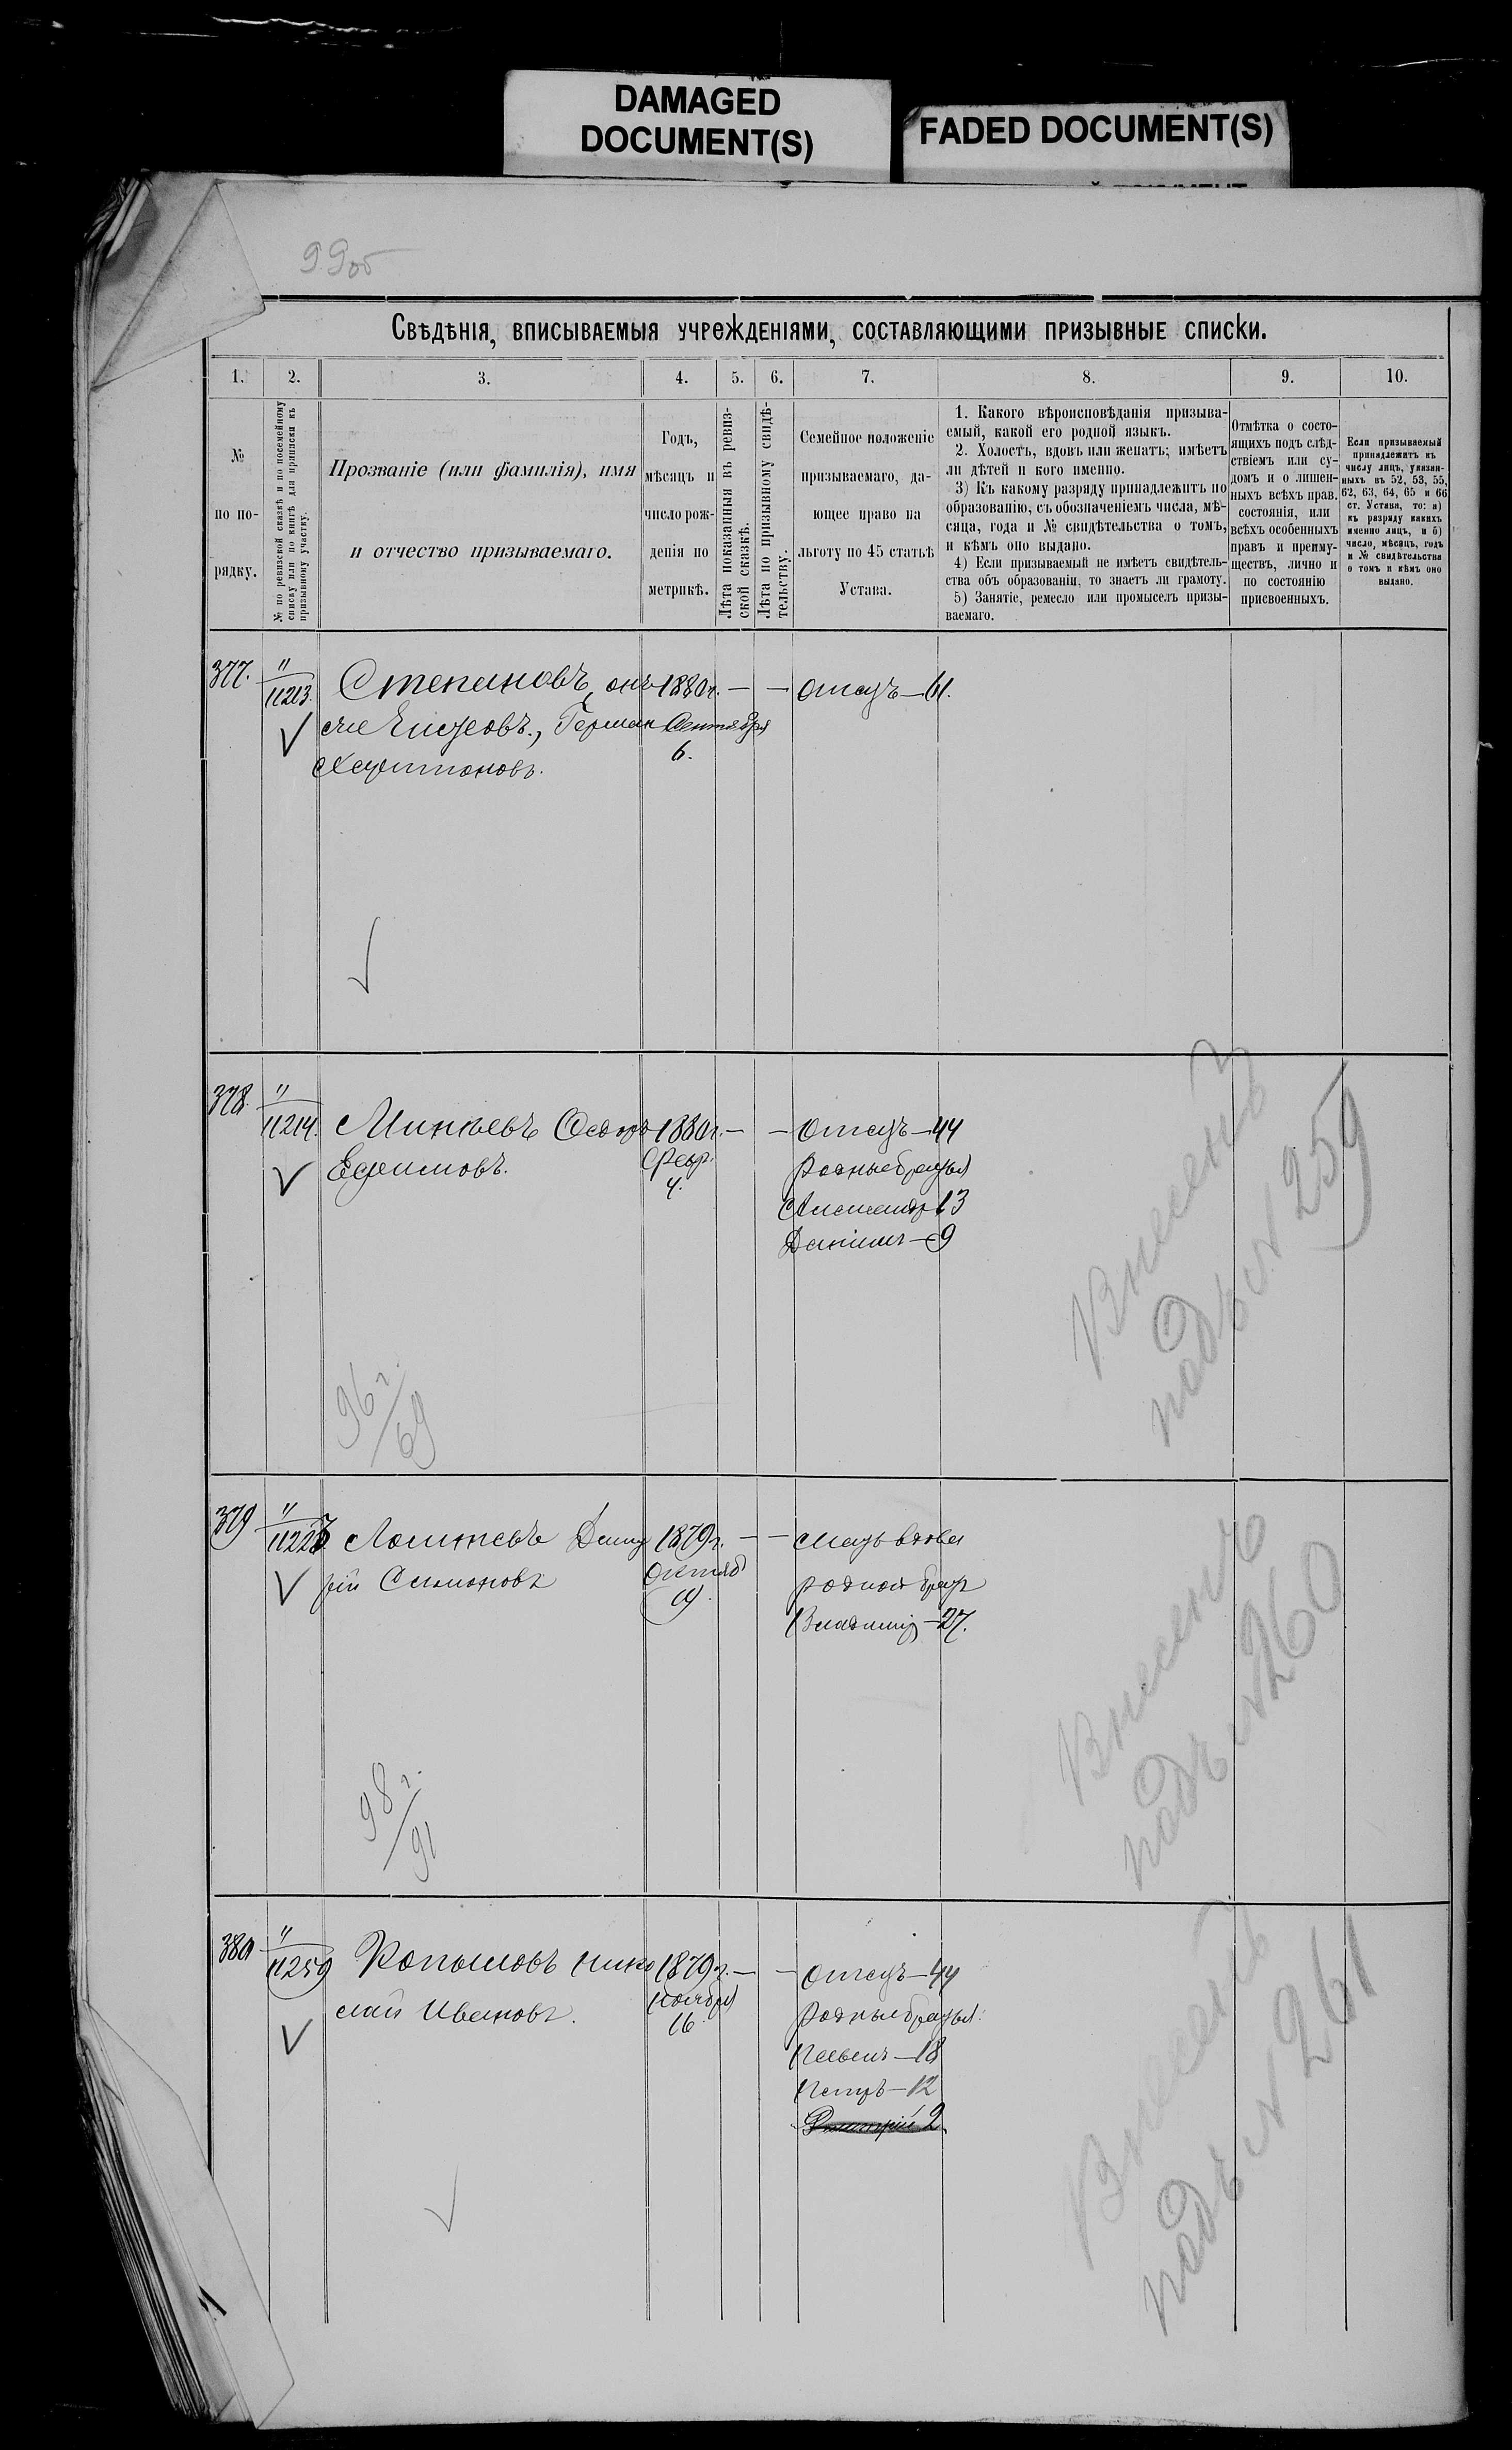 DAMAGED
DOCUMENT(S)
FADED DOCUMENT(S)
99об
Свѣдѣнія, вписываемыя учрежденіями, составляющими призывные списки.
1. 2. 3. 4. 5. 6. 7. 8. 9. 10.
№
по по-
рядку.
№ по ревизской сказкѣ и по посемейному
списку или по книгѣ для приписки къ
призывному участку.
Прозваніе (или фамилія), имя
и отчество призываемаго.
Годъ,
мѣсяцъ и
число рож-
денія по
метрикѣ.
Лѣта показанныя въ ревиз-
ской сказкѣ.
Лѣта по призывному свидѣ-
тельству.
Семейное положеніе
призываемаго, да-
ющее право на
льготу по 45 статьѣ
Устава.
1. Какого вѣроисповѣданія призыва-
емый, какой его родной языкъ.
2. Холостъ, вдовъ или женатъ; имѣетъ
ли дѣтей и кого именно.
3) Къ какому разряду принадлежитъ по
образованію, съ обозначеніемъ числа, мѣ-
сяца, года и № свидѣтельства о томъ,
и кѣмъ оно выдано.
4) Если призываемый не имѣетъ свидѣтель-
ства объ образованіи, то знаетъ ли грамоту.
5) Занятіе, ремесло или промыселъ призы-
ваемаго.
Отмѣтка о состо-
ящихъ подъ слѣд-
ствіемъ или су-
домъ и о лишен-
ныхъ всѣхъ прав.
состоянія, или
всѣхъ особенныхъ
правъ и преиму-
ществъ, лично и
по состоянію
присвоенныхъ.
Если призываемый
принадлежитъ къ
числу лицъ, указан-
ныхъ въ 52, 53, 55,
62, 63, 64, 65 и 66
ст. Устава, то: а)
къ разряду какихъ
именно лицъ, и б)
число, мѣсяцъ, годъ
и № свидѣтельства
о томъ и кѣмъ оно
выдано.
377. " Степановъ, онъ 1880г. — — Отецъ—61.
11213. же Герман Сентября
Харитоновъ. 6.
378. "
11214. Минаевъ Ѳедоръ 1880г. — — Отецъ—44
Ефимовъ. Февр. родные братья
4. Александръ 13
Даніилъ—9
Внесенъ
подъ № 259
96 г.
69
379 "
11223 Дмит 1879г. — — мать вдова
рій Симоновъ Октяб родной братъ
9. Владиміръ—27.
Внесенъ
подъ № 260
98 г.
91
380 "
11259 Копыловъ Нико 1879г. — — Отецъ—44
лай Ивановъ. Ноября родные братья:
16. Павелъ—18
Петръ—12
Дмитрій 2
Внесенъ
подъ № 261